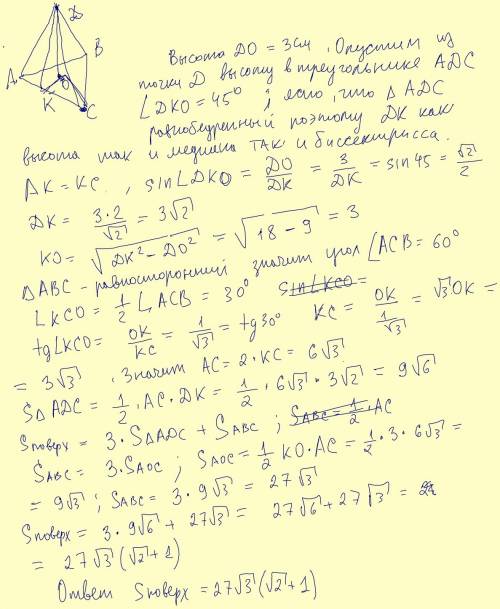 D
B
A
O
K
C
Высота DO = 3см, Опустим из
точки D высоту в треугольнике ADC
∠DKO = 45° ; ясно, что △ ADC
равнобедренный поэтому DK как
высота так и медиана так и биссектрисса.
AK = KC. , sin∠DKO = DO/DK = 3/DK = sin 45 = √2/2
DK = 3·2/√2 = 3√2
KO = √(DK² − DO²) = √(18 − 9) = 3
△ABC - равносторонний значит угол ∠ACB = 60°
∠KCO = 1/2 ∠ACB = 30° sin∠KCO =
tg∠KCO = OK/KC = 1/√3 = tg30° KC = OK/(1/√3) = √3OK =
= 3√3 . Значит AC = 2·KC = 6√3
S△ADC = 1/2 · AC · DK = 1/2 · 6√3 · 3√2 = 9√6
Sповерх = 3·S△ADC + SABC ; SABC = 1/2 · AC
SABC = 3·SAOC ; SAOC = 1/2 KO·AC = 1/2 · 3 · 6√3 =
= 9√3 ; SABC = 3·9√3 = 27√3
Sповерх = 3·9√6 + 27√3 = 27√6 + 27√3 =
= 27√3 (√2 + 1)
Ответ Sповерх = 27√3 (√2 + 1)